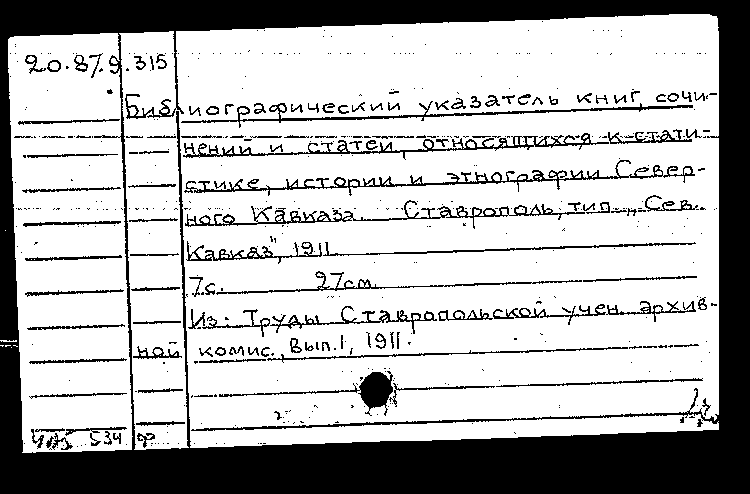 20.87.9.315
Библиографический указатель книг, сочи-
нений и статей, относящихся к стати-
стике, истории и этнографии Север-
ного Кавказа. Ставрополь, тип. „Сев.
Кавказ", 1911.
7с. 27см.
Из: Труды Ставропольской учен. архив-
ной комис., Вып.1, 1911.
534 ф